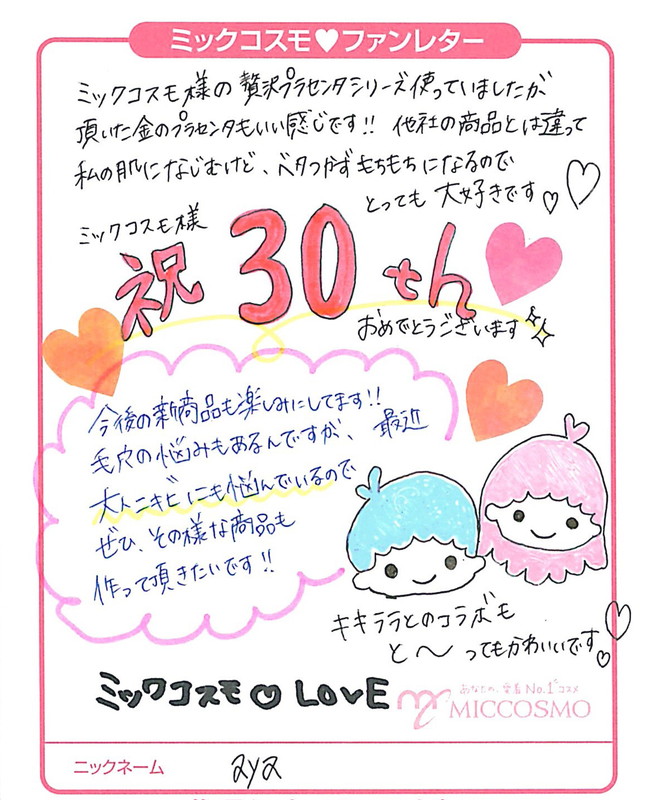 ミックコスモ♥ファンレター
ミックコスモ様の贅沢プラセンタシリーズ使っていましたが
頂いた金のプラセンタもいい感じです!! 他社の商品とは違って
私の肌になじむけど、ベタつかずもちもちになるので
とっても大好きです♡♡
ミックコスモ様
祝30th
おめでとうございます
今後の新商品も楽しみにしてます!!
毛穴の悩みもあるんですが、最近
大人ニキビにも悩んでいるので
ぜひ、その様な商品も
作って頂きたいです!!
キキララとのコラボも
と〜ってもかわいいです♡♡
ミックコスモ♡LOVE
あなたの、愛着No.1コスメ
MICCOSMO
ニックネーム aya